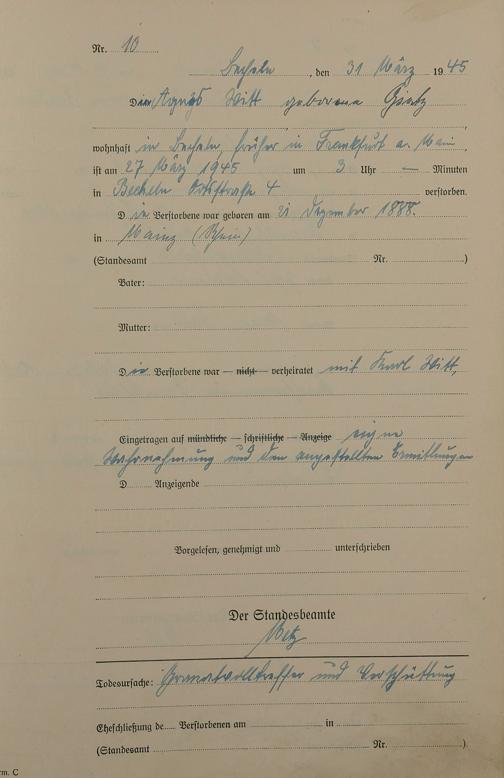 Nr. 10
Becheln, den 31 März 1945
Die Agnes Witt geborene
wohnhaft in Becheln, früher in Frankfurt a. Main,
ist am 27 März 1945 um 3 Uhr — Minuten
in Becheln Ortsstraße 4 verstorben.
Die Verstorbene war geboren am 21 Dezember 1888.
in Mainz (Rhein)
(Standesamt Nr. )
Vater:
Mutter:
Die Verstorbene war — nicht — verheiratet mit Karl Witt,
Eingetragen auf mündliche — schriftliche — Anzeige eigne
Wahrnehmung und den angestellten Ermittlungen
D Anzeigende
Vorgelesen, genehmigt und unterschrieben
Der Standesbeamte
Todesursache: Granatvolltreffer und Verschüttung
Eheschließung de Verstorbenen am in
(Standesamt Nr. )
rm. C